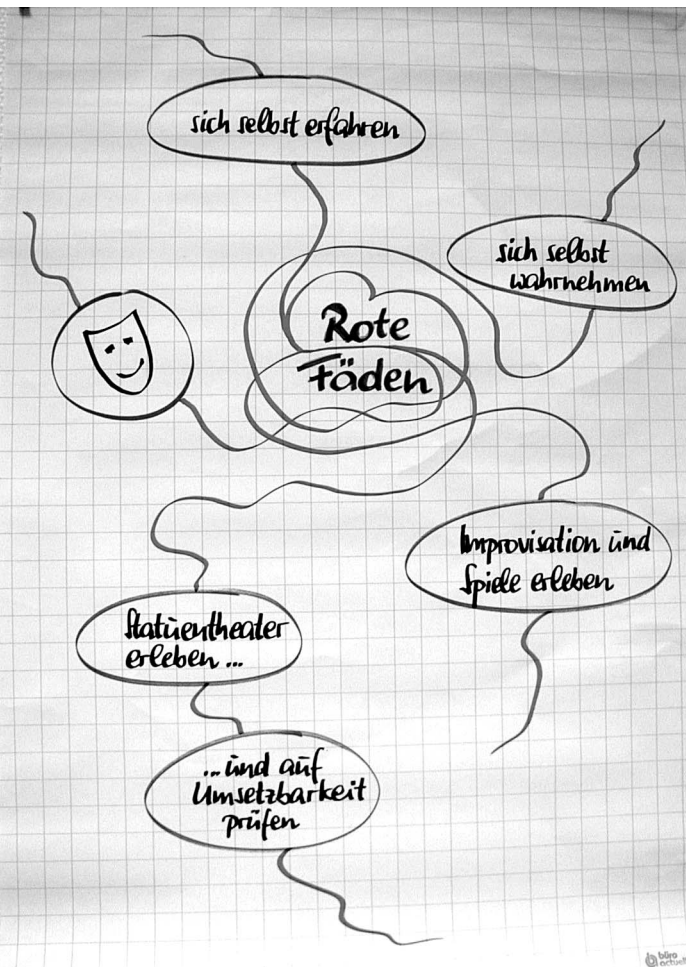 sich selbst erfahren
sich selbst
wahrnehmen
Rote
Fäden
Improvisation und
Spiele erleben
Statuentheater
erleben ...
... und auf
Umsetzbarkeit
prüfen
büro
actuell